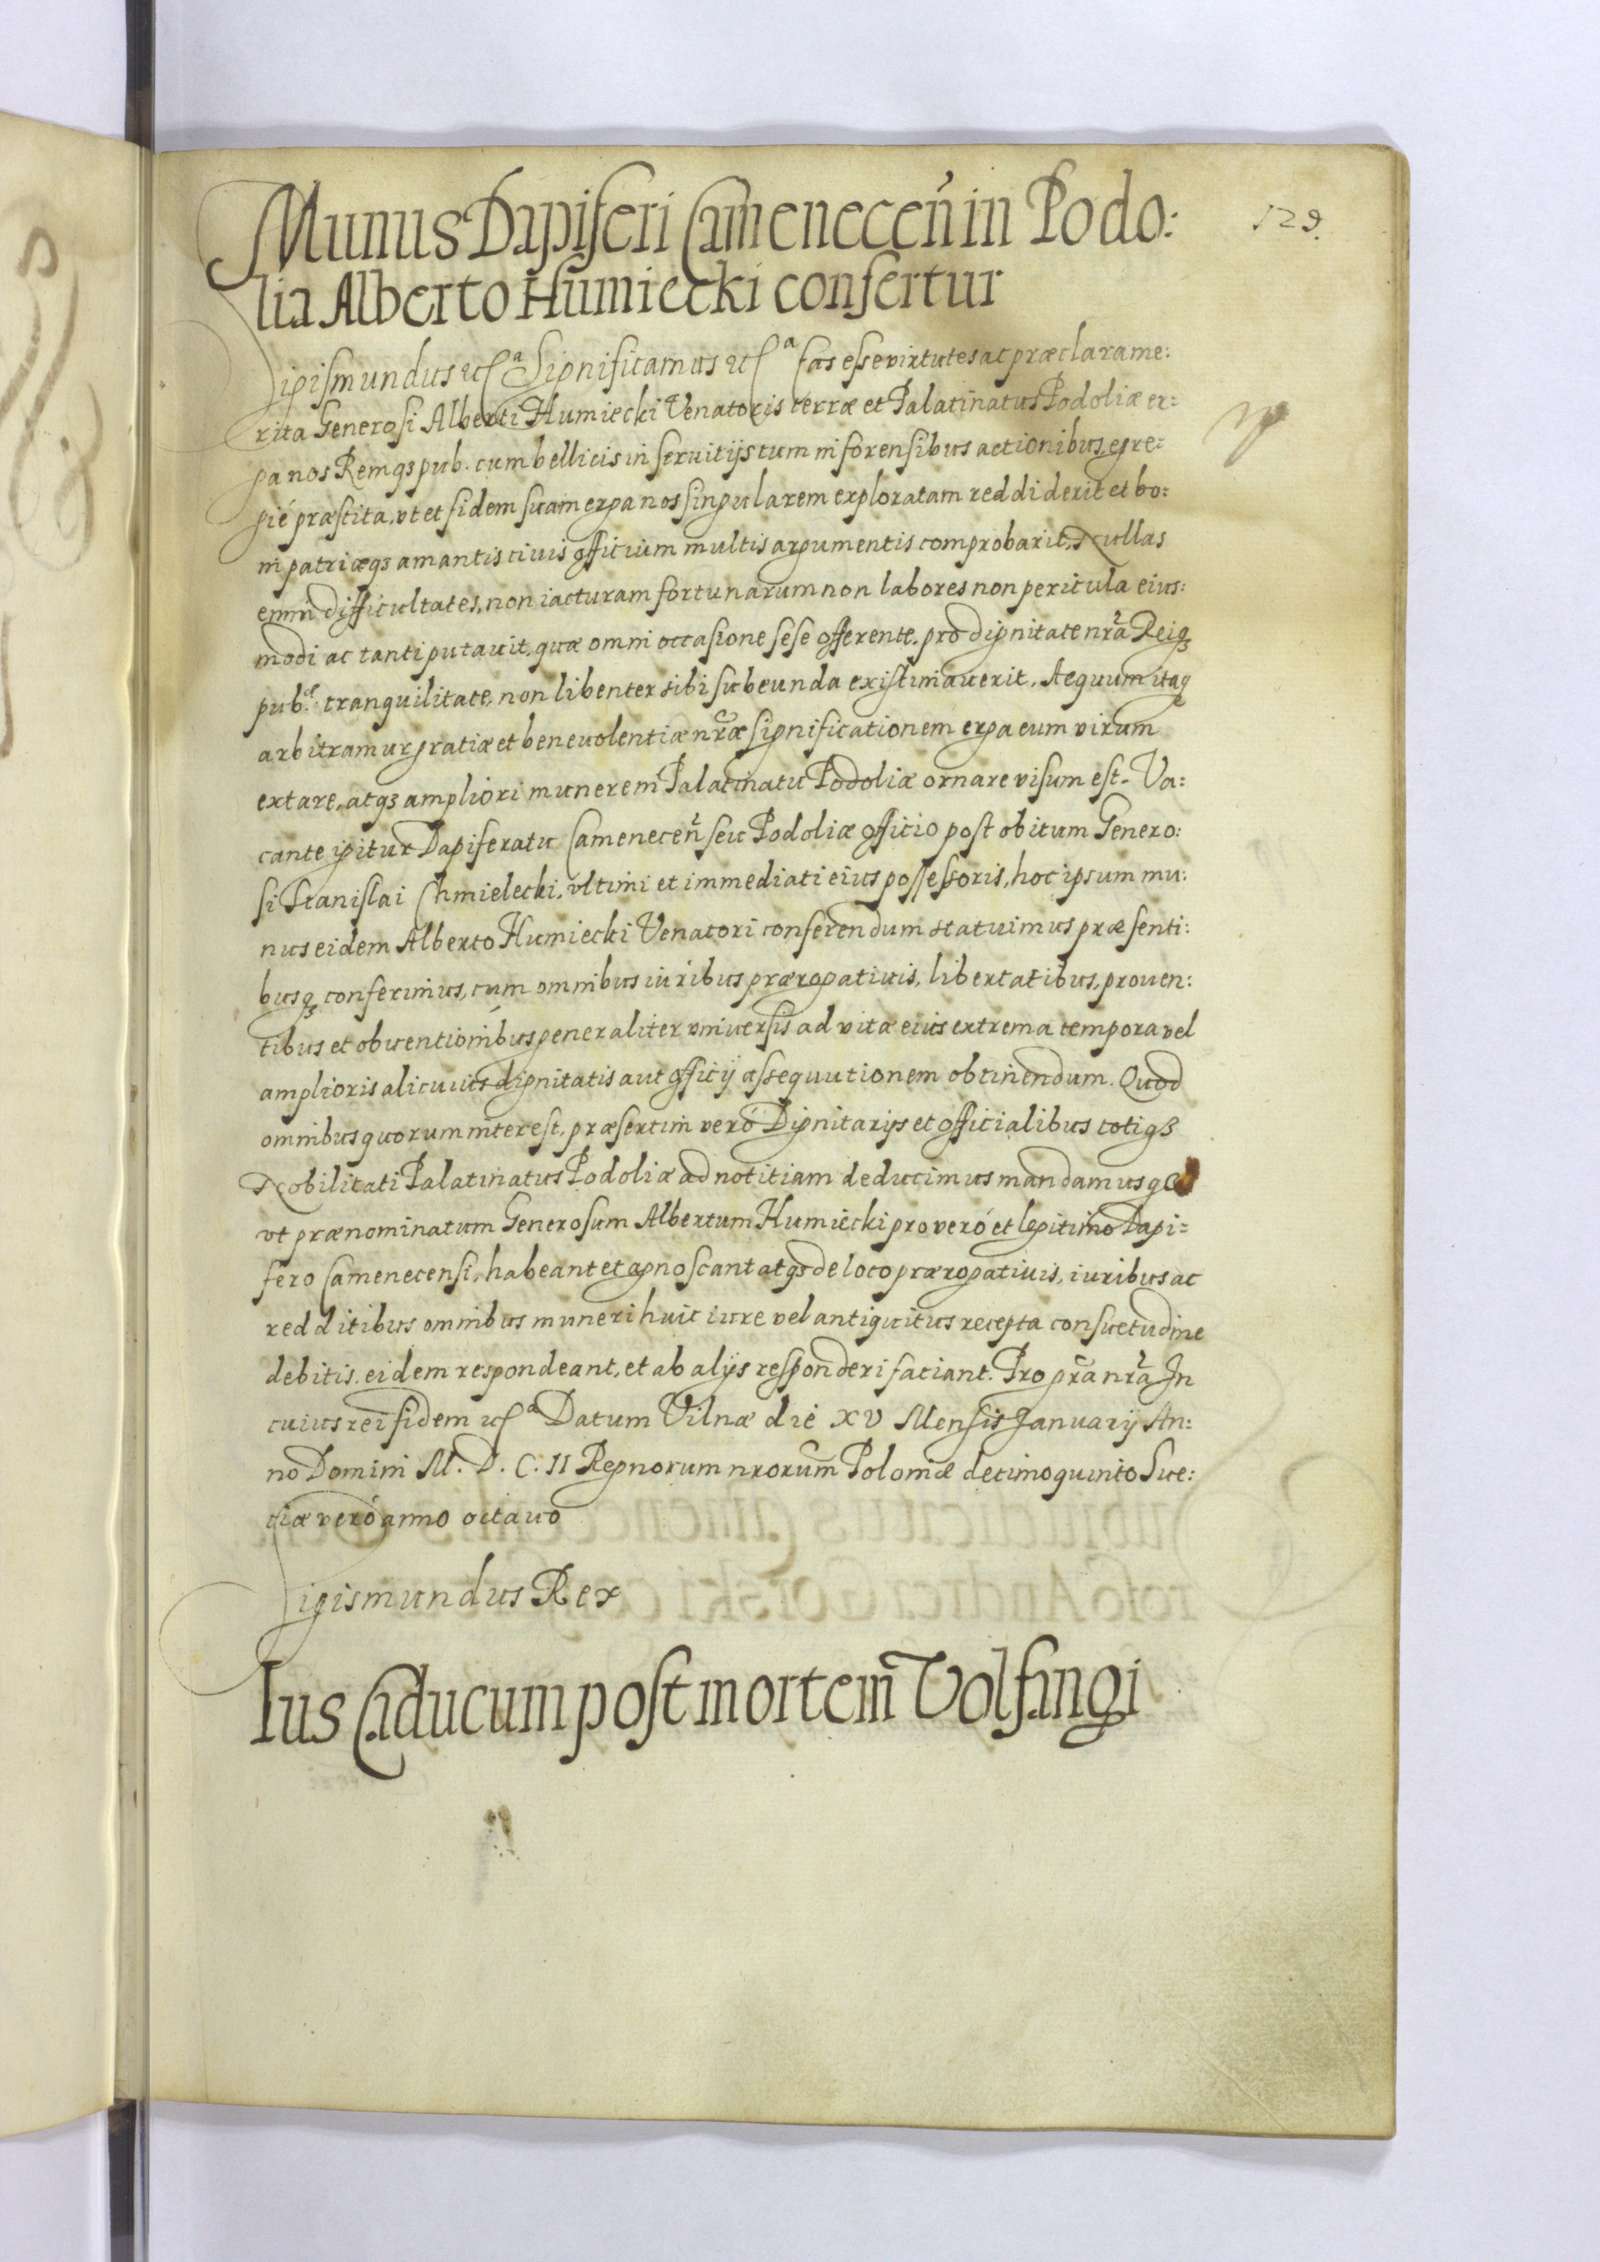 129.
Munus Dapiferi Camenecen̄ in Podo:
lia Alberto Humiecki confertur
Sigismundus etc̄a Significamus etc̄a Eas esse virtutes ac præclara me:
rita Generosi Alberti Humiecki Venatoris terræ et Palatinatus Podoliæ er:
ga nos Remqʒ pub. cum bellicis in seruitijs tum in forensibus actionibus, egre:
gié præstita, vt et fidem suam erga nos singularem exploratam reddiderit et bo:
ni patriæqʒ amantis ciuis officium multis argumentis comprobarit, Nullas
enim difficultates, non iacturam fortunarum non labores non pericula eius:
modi ac tanti putauit, quæ omni occasione sese offerente, pro dignitate nr̄a Reiqʒ
pub.æ tranquilitate, non libenter sibi subeunda existimauerit. Aequum itaqʒ
arbitramur gratiæ et beneuolentiæ nr̄æ significationem erga eum virum
extare, atqʒ ampliori munere in Palatinatu Podoliæ ornare visum est. Va:
cante igitur Dapiferatu Camenecen̄ seu Podoliæ officio post obitum Genero:
si Stanislai Chmielecki, vltimi et immediati eius possessoris, hoc ipsum mu:
nus eidem Alberto Humiecki Venatori conferendum statuimus præsenti:
busqʒ conferimus, cum omnibus iuribus prærogatiuis, libertatibus, prouen:
tibus et obuentionibus generaliter vniuersis ad vitæ eius extrema tempora vel
amplioris alicuius dignitatis aut officij assequutionem obtinendum. Quod
omnibus quorum interest, præsertim veró Dignitarijs et officialibus totiqʒ
Nobilitati Palatinatus Podoliæ ad notitiam deducimus mandamusqʒ
vt prænominatum Generosum Albertum Humiecki pro veró et legitimo Dapi:
fero Camenecensi, habeant et agnoscant atqʒ de loco prærogatiuis, iuribus ac
redditibus omnibus muneri huic iure vel antiquitus recepta consuetudine
debitis, eidem respondeant, et ab alijs responderi faciant. Pro gr̄a nr̄a In
cuius rei fidem etc̄a Datum Vilnæ die XV Mensis Januarij An:
no Domini M. D. C. II Regnorum nrorum̄ Poloniæ decimoquinto Sue:
tiæ veró anno octauo
Sigismundus Rex
Ius Caducum post mortem Volfangi